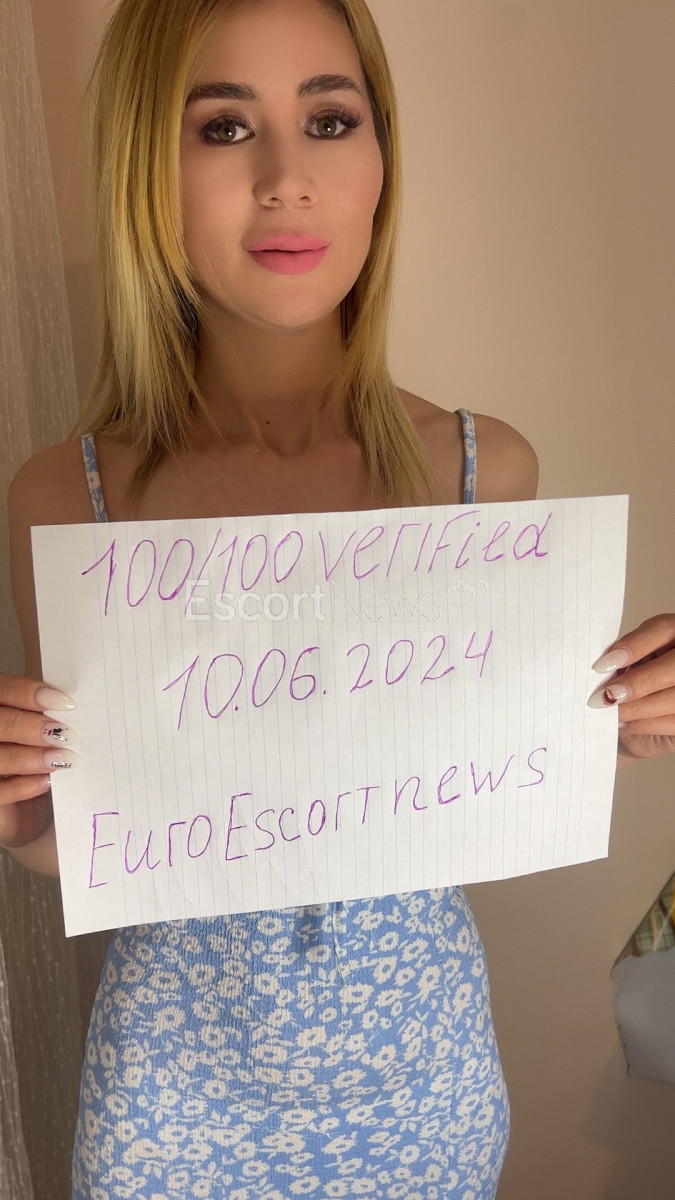 100/100 verified
Escort.News
10.06.2024
EuroEscortnews